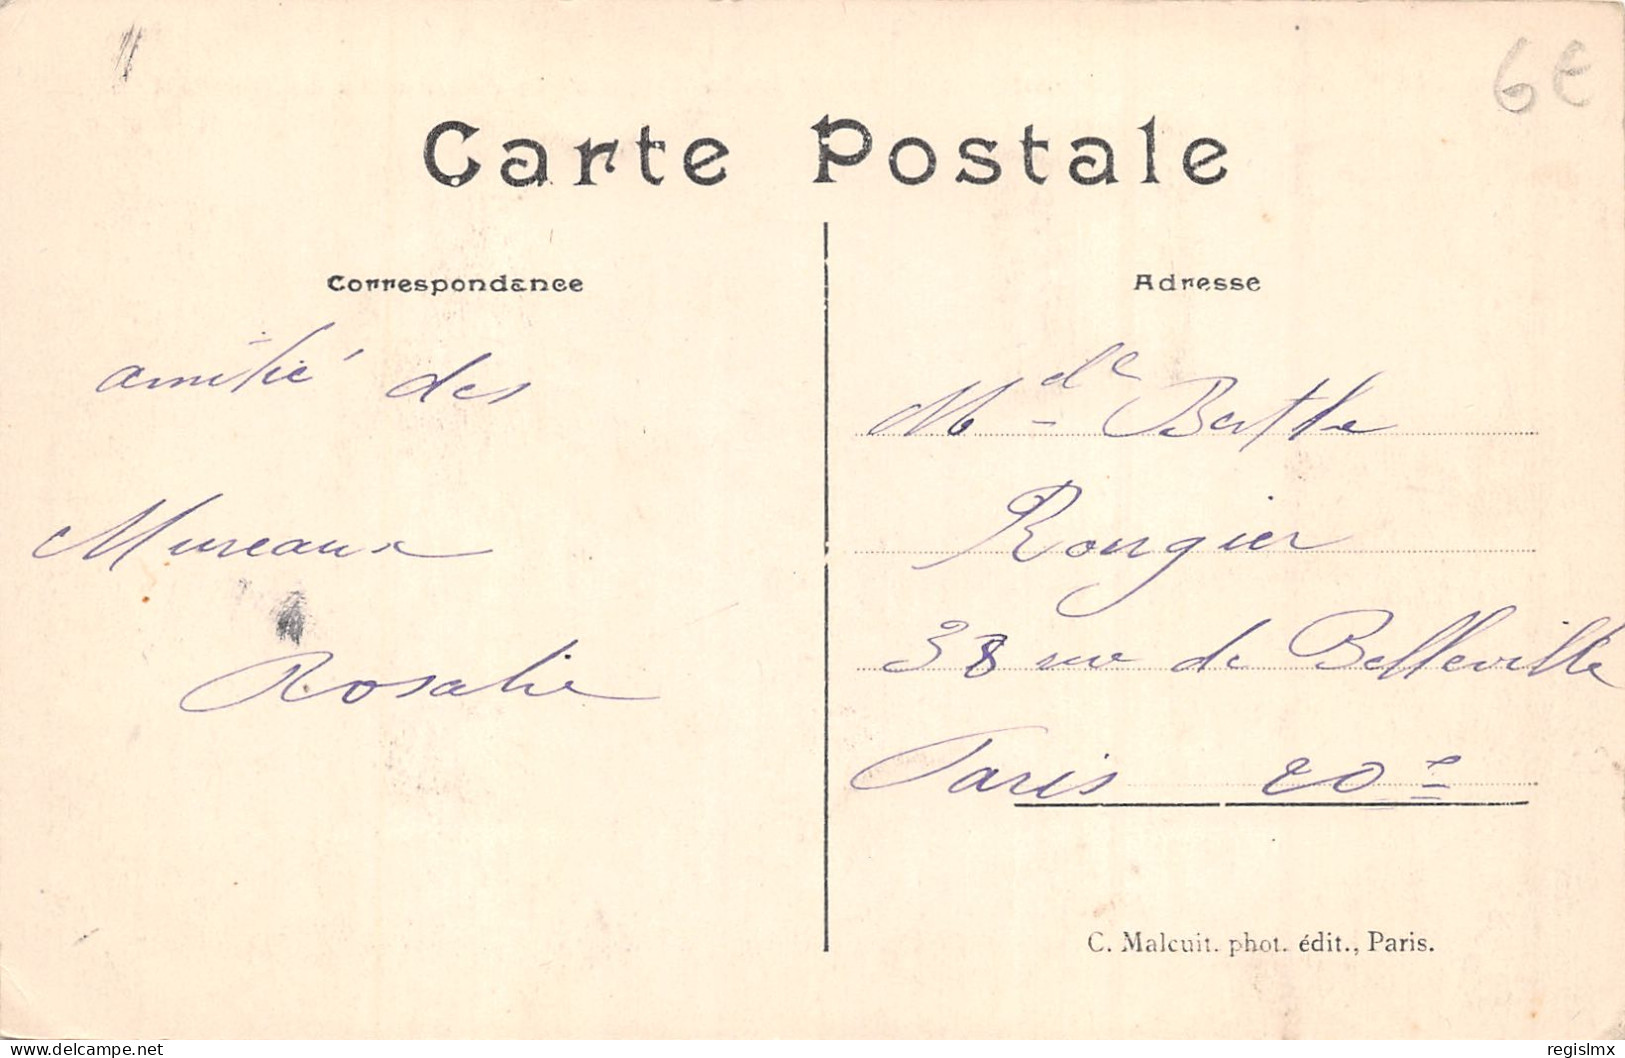 6€
Carte Postale
Correspondance
amitié des
Mureaux
Rosalie
Adresse
Mdle Berthe
Rougier
38 rue de Belleville
Paris 20e
C. Malcuit. phot. édit., Paris.
delcampe.net
regislmx